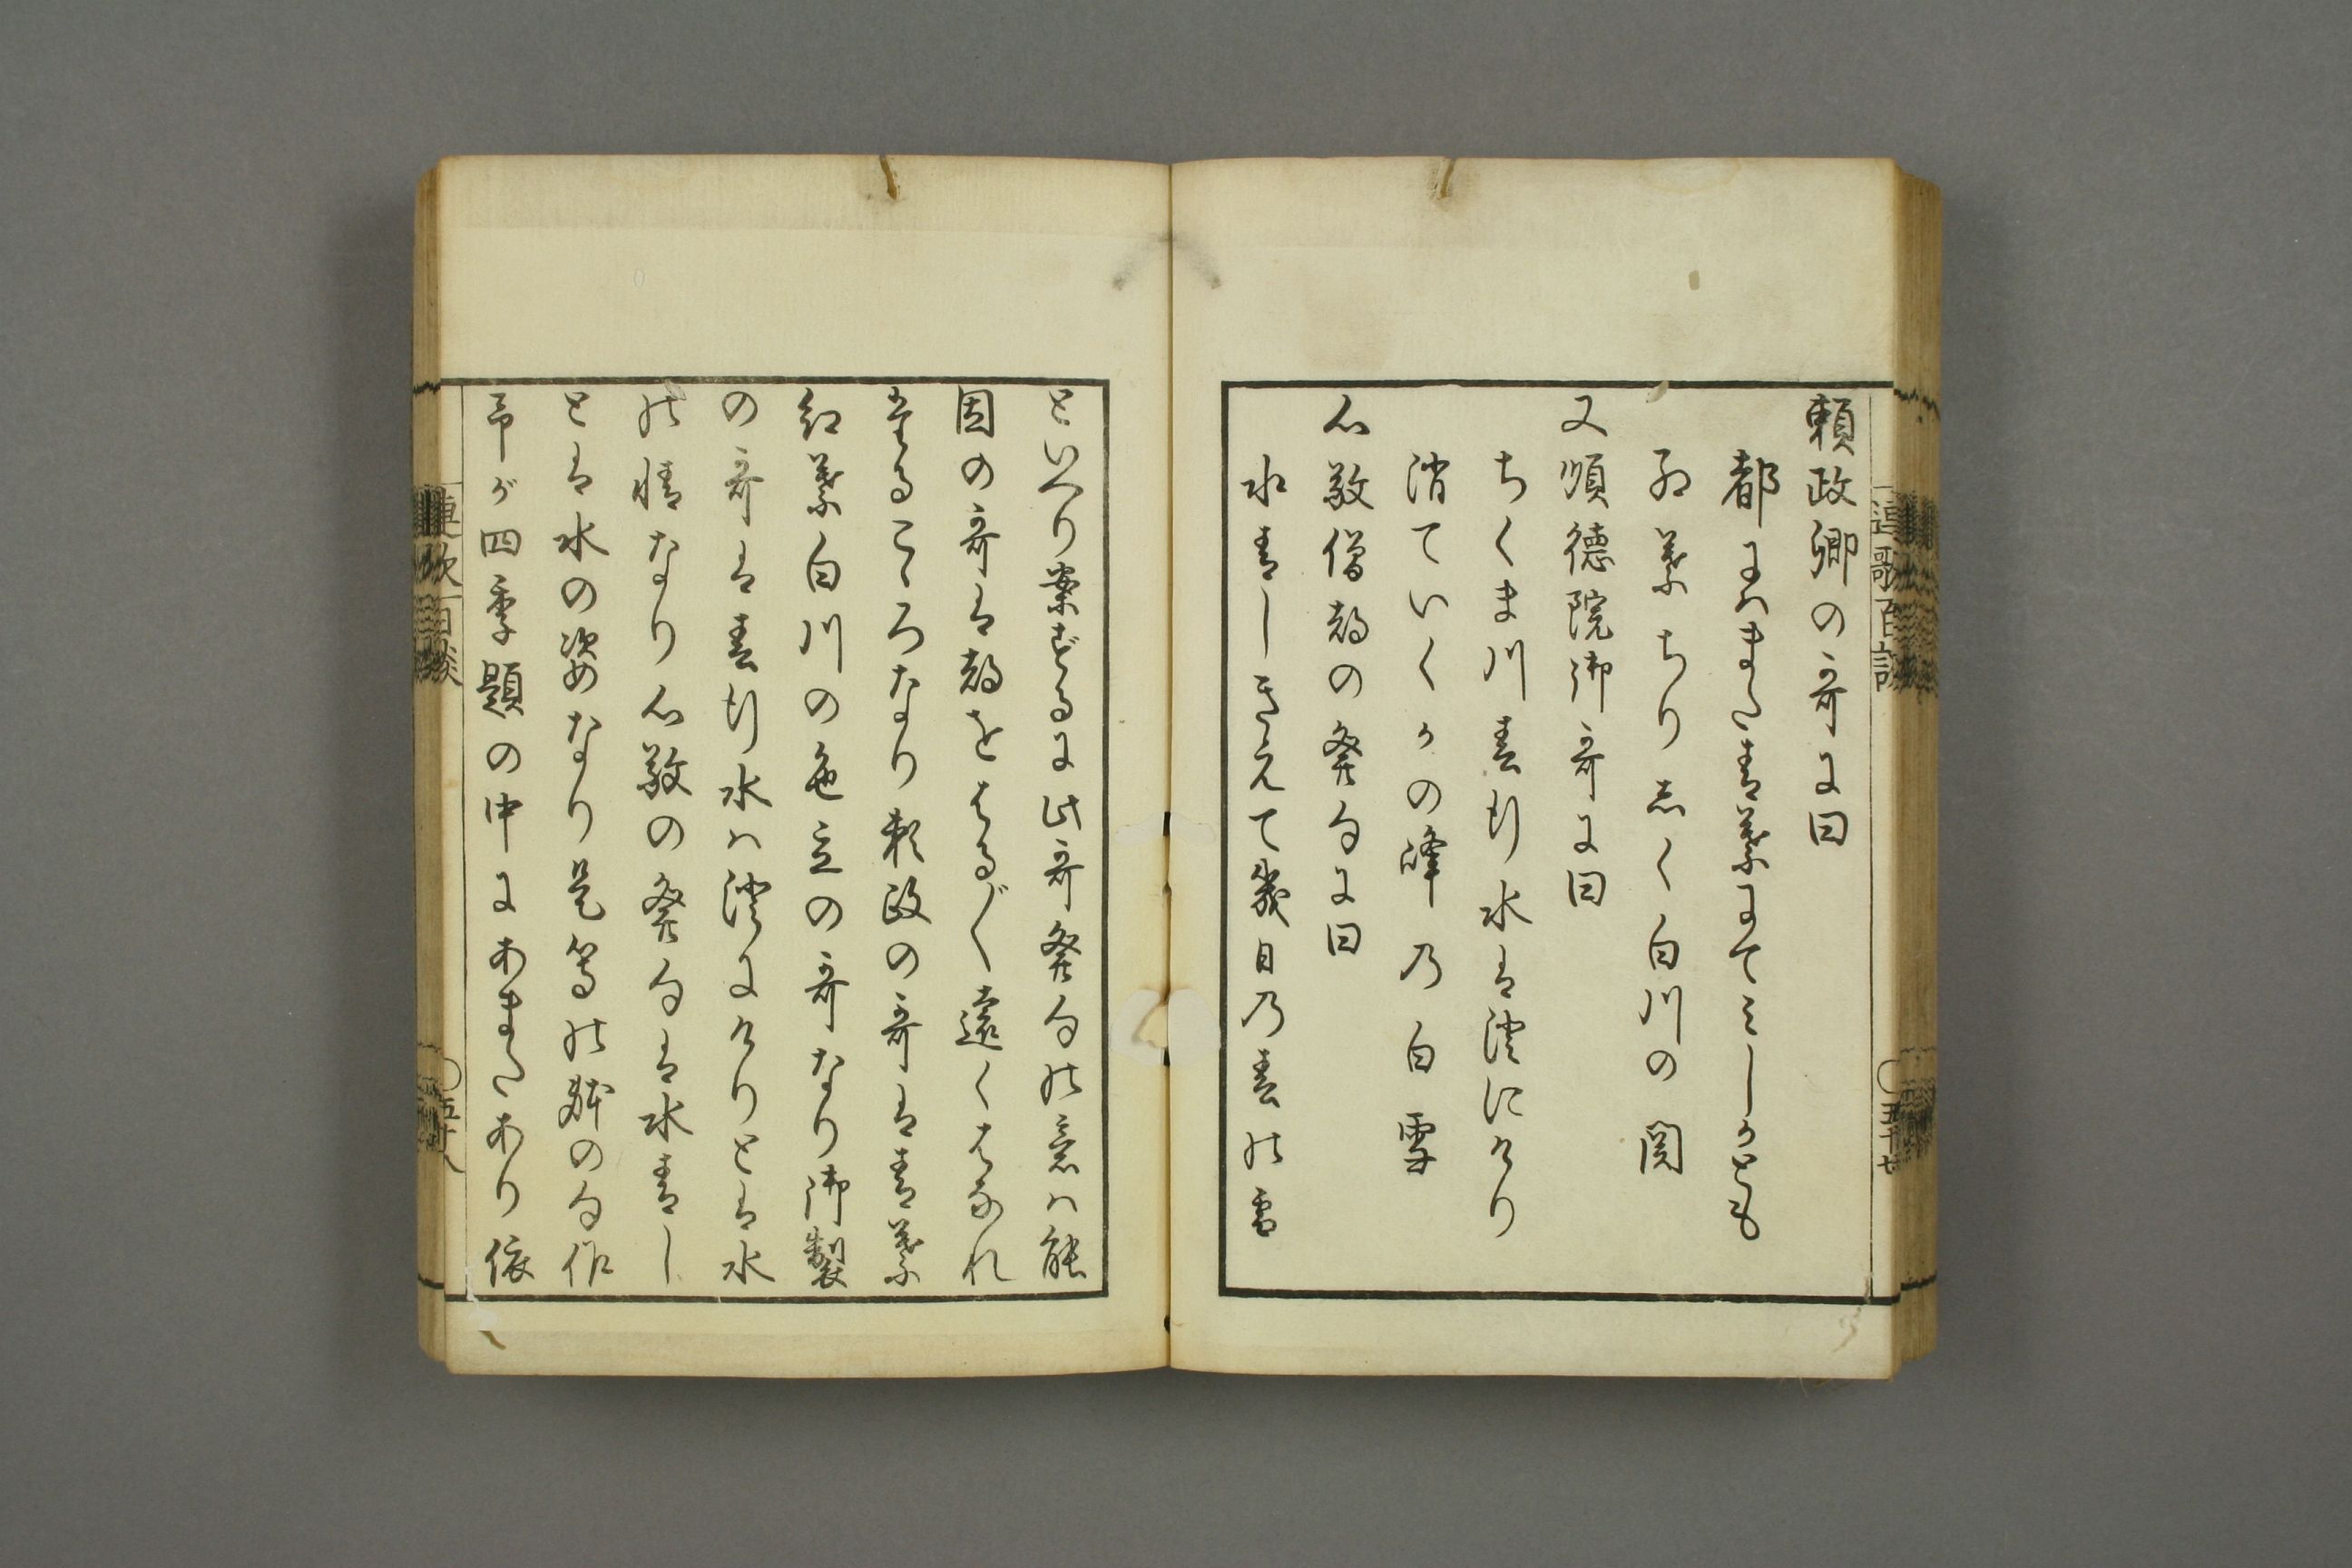 頼政卿の哥に曰
都にはまだ青葉にてみしかども
紅葉ちりしく白川の関
又順徳院御哥に曰
ちくま川春行水は澄にけり
消ていくかの峰の白雪
心敬僧都の発句に曰
水青しきえて幾日の春の雪
連歌百談
〇五十七
といへり案ずるに此哥発句の意は能
因の哥は都をはる〴〵遠くはなれ
きたるこゝろなり頼政の哥は青葉
紅葉白川の色立の哥なり御製
の哥は春行水は澄にけりとは水
の情なり心敬の発句は水青し
とは水の姿なり是等の躰の句作
予が四季題の中にあまたあり依
連歌百談
〇五十八